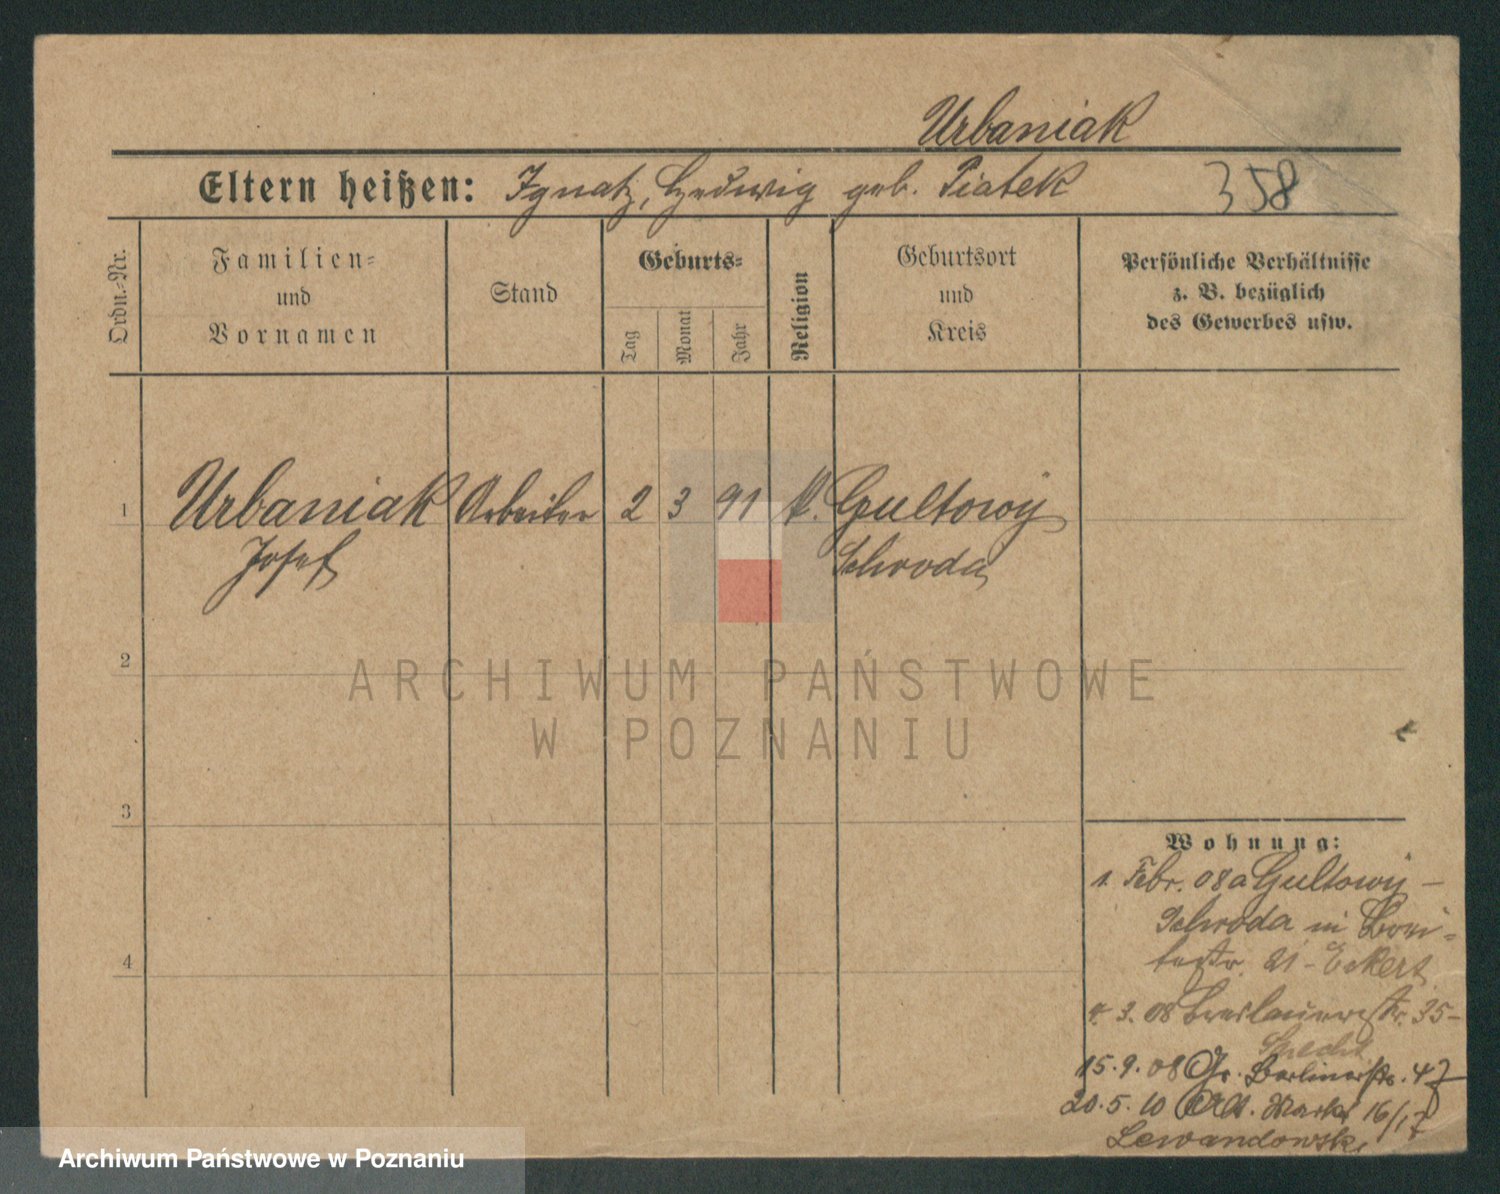 Urbaniak
Eltern heißen: Ignatz, Hedwig geb. Piatek
358
Ordn.-Nr.
Familien-
und
Vornamen
Stand
Geburts-
Tag
Monat
Jahr
Religion
Geburtsort
und
Kreis
Persönliche Verhältnisse
z. B. bezüglich
des Gewerbes usw.
1 Urbaniak Arbeiter 2 3 91 k. Gultowÿ
Josef Schroda
2
ARCHIWUM PAŃSTWOWE
W POZNANIU
3
Wohnung:
1. Febr. 08 a Gultowÿ -
Schroda in Brei-
testr. 21 - Eckert
4. 3. 08 Breslauerstr. 35-
Specht
15. 9. 08 Gr. Berlinerstr. 47
20. 5. 10 Alt. Markt 16/17
Lewandowski
4
Archiwum Państwowe w Poznaniu